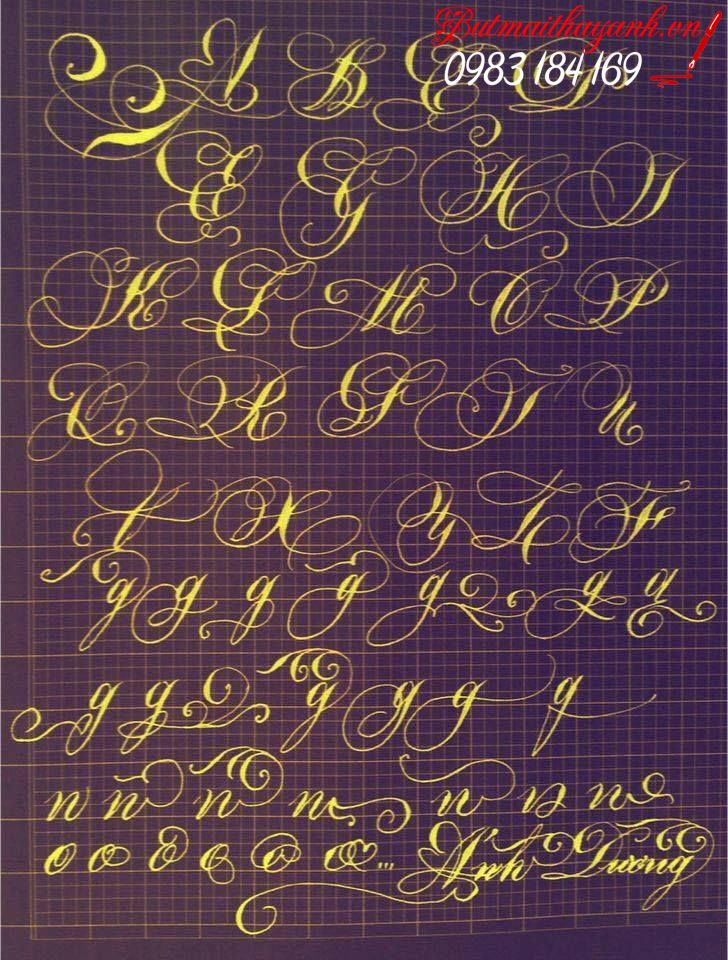 Butmaithayanh.vn
0983 184 169
A B C D
E G H I
K L M O P
Q R S T U
V X Y Z F
g g g g g g g
g g g g g g g
n n n n n n n
o o o o o o ... Ánh Dương